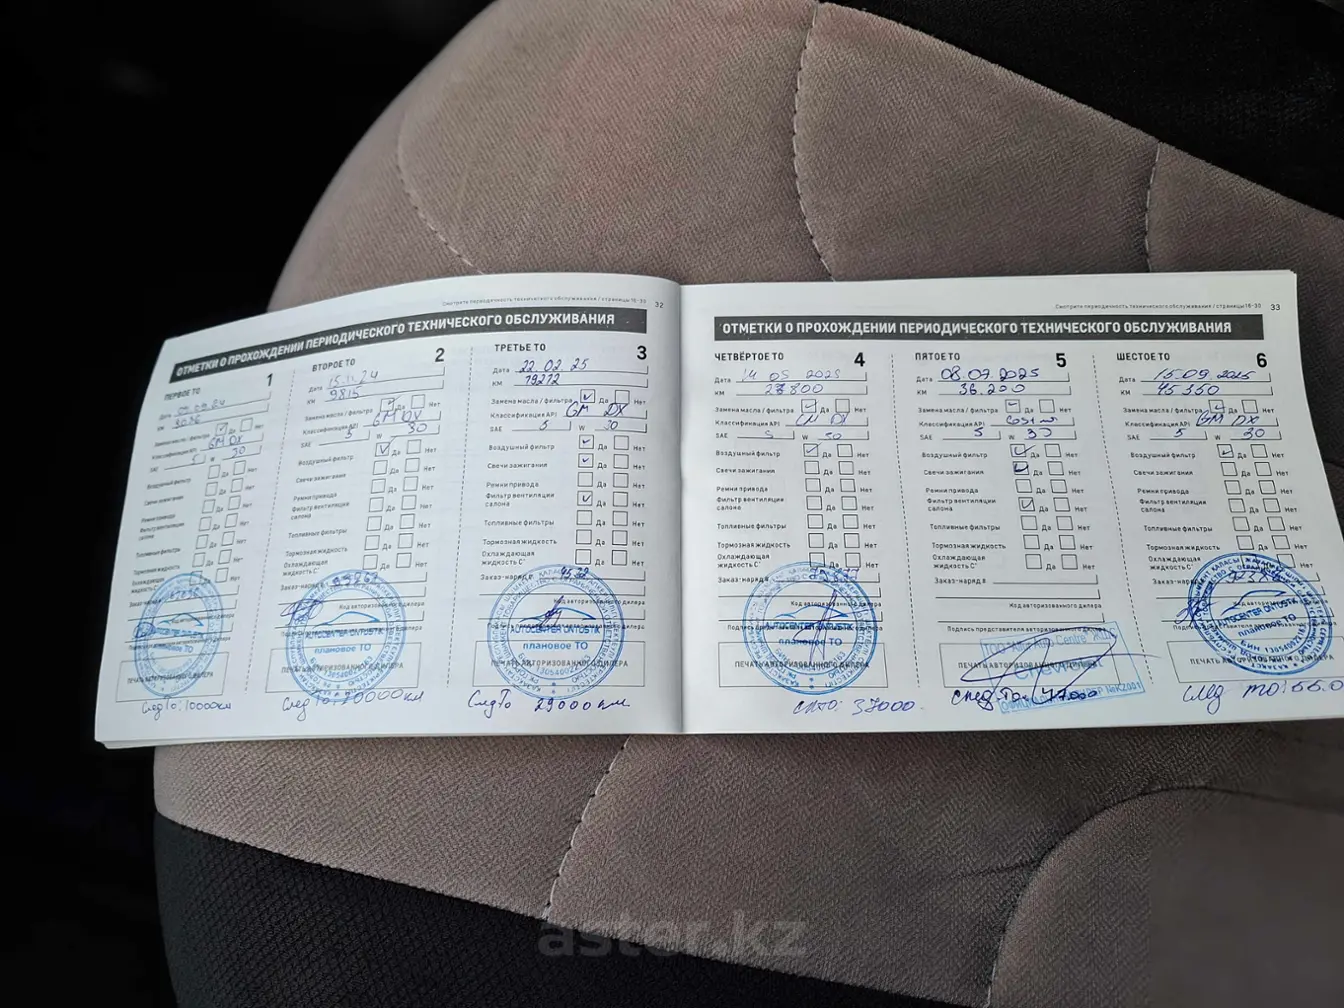 Смотрите периодичность технического обслуживания / страницы 16-30 32
ОТМЕТКИ О ПРОХОЖДЕНИИ ПЕРИОДИЧЕСКОГО ТЕХНИЧЕСКОГО ОБСЛУЖИВАНИЯ
ПЕРВОЕ ТО 1
Дата 09.09.24
КМ
Замена масла / фильтра Да Нет
Классификация API GM DX
SAE 5 W 30
Воздушный фильтр Да Нет
Свечи зажигания Да Нет
Ремни привода Да Нет
Фильтр вентиляции
салона Да Нет
Топливные фильтры Да Нет
Тормозная жидкость Да Нет
Охлаждающая
жидкость C° Да Нет
Заказ-наряд #
плановое ТО
ПЕЧАТЬ АВТОРИЗОВАННОГО ДИЛЕРА
След ТО: 10000 км
ВТОРОЕ ТО 2
Дата 15.11.24
КМ 9815
Замена масла / фильтра Да Нет
Классификация API GM DX
SAE 5 W 30
Воздушный фильтр Да Нет
Свечи зажигания Да Нет
Ремни привода Да Нет
Фильтр вентиляции
салона Да Нет
Топливные фильтры Да Нет
Тормозная жидкость Да Нет
Охлаждающая
жидкость C° Да Нет
Заказ-наряд #
Код авторизованного дилера
AUTOCENTER ONTUSTIK
плановое ТО
ПЕЧАТЬ АВТОРИЗОВАННОГО ДИЛЕРА
След ТО: 20000 км
ТРЕТЬЕ ТО 3
Дата 22.02.25
КМ 19272
Замена масла / фильтра Да Нет
Классификация API GM DX
SAE 5 W 30
Воздушный фильтр Да Нет
Свечи зажигания Да Нет
Ремни привода Да Нет
Фильтр вентиляции
салона Да Нет
Топливные фильтры Да Нет
Тормозная жидкость Да Нет
Охлаждающая
жидкость C° Да Нет
Заказ-наряд #
Код авторизованного дилера
AUTOCENTER ONTUSTIK
плановое ТО
ПЕЧАТЬ АВТОРИЗОВАННОГО ДИЛЕРА
След ТО 29000 км
Смотрите периодичность технического обслуживания / страницы 16-30 33
ОТМЕТКИ О ПРОХОЖДЕНИИ ПЕРИОДИЧЕСКОГО ТЕХНИЧЕСКОГО ОБСЛУЖИВАНИЯ
ЧЕТВЁРТОЕ ТО 4
Дата 14 05 2025
КМ 27800
Замена масла / фильтра Да Нет
Классификация API DX
SAE 5 W 30
Воздушный фильтр Да Нет
Свечи зажигания Да Нет
Ремни привода Да Нет
Фильтр вентиляции
салона Да Нет
Топливные фильтры Да Нет
Тормозная жидкость Да Нет
Охлаждающая
жидкость C° Да Нет
Заказ-наряд #
Код авторизованного дилера
AUTOCENTER ONTUSTIK
плановое ТО
ПЕЧАТЬ АВТОРИЗОВАННОГО ДИЛЕРА
37000
ПЯТОЕ ТО 5
Дата 08.07.2025
КМ 36.200
Замена масла / фильтра Да Нет
Классификация API
SAE 5 W 30
Воздушный фильтр Да Нет
Свечи зажигания Да Нет
Ремни привода Да Нет
Фильтр вентиляции
салона Да Нет
Топливные фильтры Да Нет
Тормозная жидкость Да Нет
Охлаждающая
жидкость C° Да Нет
Заказ-наряд #
Код авторизованного дилера
Подпись представителя авторизованного дилера
ПЕЧАТЬ АВТОРИЗОВАННОГО ДИЛЕРА
След ТО: 47000
ШЕСТОЕ ТО 6
Дата 15.09.2025
КМ 45350
Замена масла / фильтра Да Нет
Классификация API GM DX
SAE 5 W 30
Воздушный фильтр Да Нет
Свечи зажигания Да Нет
Ремни привода Да Нет
Фильтр вентиляции
салона Да Нет
Топливные фильтры Да Нет
Тормозная жидкость Да Нет
Охлаждающая
жидкость C° Да Нет
Заказ-наряд #
AUTOCENTER ONTUSTIK
плановое ТО
ПЕЧАТЬ АВТОРИЗОВАННОГО
След ТО: 55.0
aster.kz